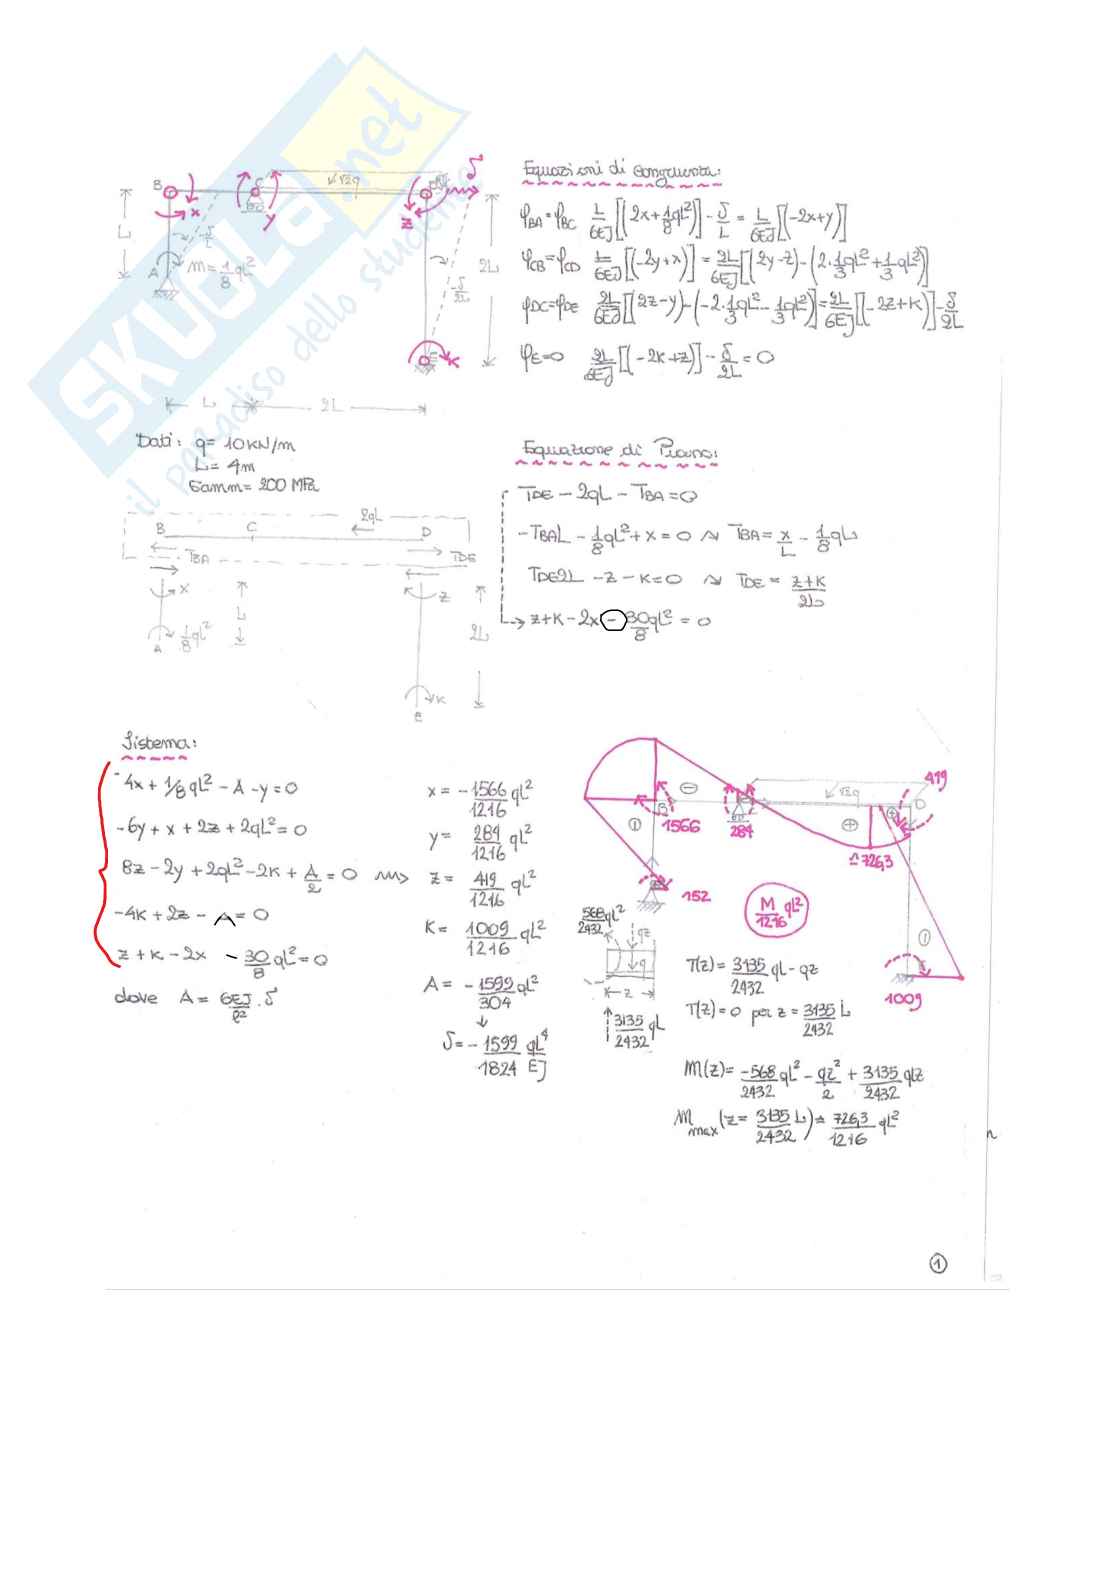 SKUOLA.net
il paradiso dello studente
B
C
D
√2q
δ
x
y
z
L
δ/L
A
m = 1/8 qL²
2L
δ/2L
E
K
L
2L
Dati: q = 10 KN/m
L = 4m
σamm = 200 MPa
Equazioni di congruenza:
φBA = φBC L/6EJ [(2x + 1/8 qL²)] - δ/L = L/6EJ [(-2x+y)]
φCB = φCD L/6EJ [(-2y+x)] = 2L/6EJ [(2y-z) - (2·1/3 qL² + 1/3 qL²)]
φDC = φDE 2L/6EJ [(2z-y) - (-2·1/3 qL² - 1/3 qL²)] = 2L/6EJ [(-2z+K)] - δ/2L
φE = 0 2L/6EJ [(-2K+z)] - δ/2L = 0
Equazione di Piano:
TDE - 2qL - TBA = 0
-TBAL - 1/8 qL² + x = 0 ⇝ TBA = x/L - 1/8 qL
TDE2L - z - K = 0 ⇝ TDE = z+K/2L
z + K - 2x - 30/8 qL² = 0
2qL
B
C
D
TBA
TDE
x
z
L
2L
1/8 qL²
A
K
E
Sistema:
-4x + 1/8 qL² - A - y = 0
-6y + x + 2z + 2qL² = 0
8z - 2y + 2qL² - 2K + A/2 = 0
-4K + 2z - A = 0
z + K - 2x - 30/8 qL² = 0
dove A = 6EJ/l² · δ
x = -1566/1216 qL²
y = 284/1216 qL²
z = 419/1216 qL²
K = 1009/1216 qL²
A = -1599/304 qL²
δ = -1599/1824 qL⁴/EJ
419
√2q
D
B
1566
284
≃726,3
152
M/1216 qL²
1009
568/2432 qL²
qz
q
z
3135/2432 qL
T(z) = 3135/2432 qL - qz
T(z) = 0 per z = 3135/2432 L
M(z) = -568/2432 qL² - qz²/2 + 3135/2432 qLz
Mmax (z = 3135/2432 L) ≃ 726,3/1216 qL²
1